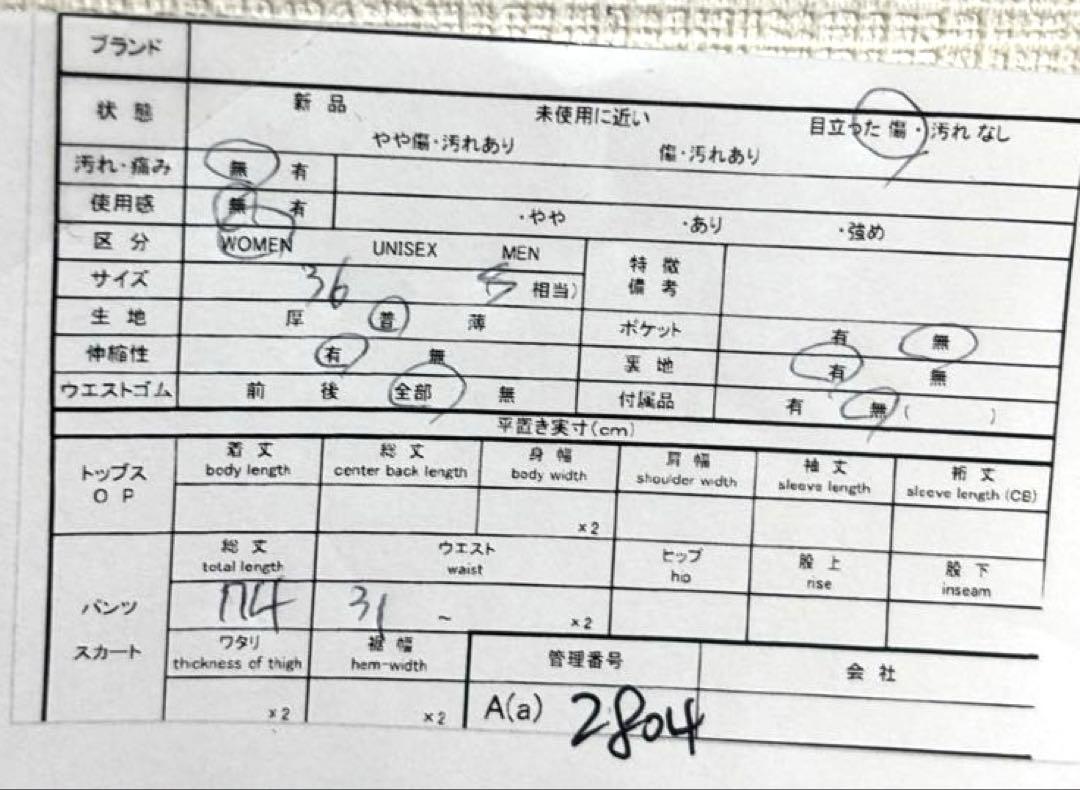 ブランド
状態 新品 未使用に近い 目立った傷・汚れなし
やや傷・汚れあり 傷・汚れあり
汚れ・痛み 無 有
使用感 無 有 ・やや ・あり ・強め
区分 WOMEN UNISEX MEN 特徴備考
サイズ 36 相当)
生地 厚 普 薄 ポケット 有 無
伸縮性 有 無 裏地 有 無
ウエストゴム 前 後 全部 無 付属品 有 無( )
平置き実寸(cm)
トップス OP
着丈 総丈 身幅 肩幅 袖丈 裄丈
body length center back length body width shoulder width sleeve length sleeve length (CB)
×2
パンツ スカート
総丈 ウエスト ヒップ 股上 股下
total length waist hip rise inseam
31 ~ ×2
ワタリ 裾幅 管理番号 会社
thickness of thigh hem-width
×2 ×2 A(a) 2804